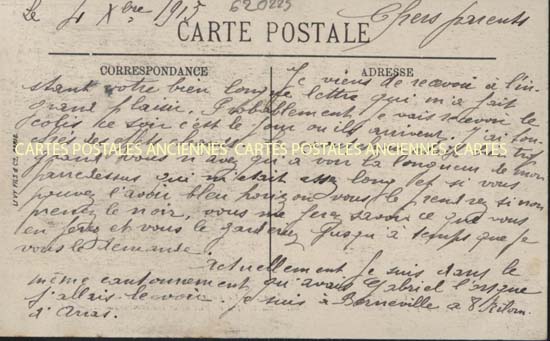 Le 4 Xbre 1915 620225 Chers parents
CARTE POSTALE
CORRESPONDANCE ADRESSE
Je viens de recevoir à l'in-
stant votre bien longue lettre qui m'a fait le
grand plaisir. Probablement je vais recevoir le
colis ce soir c'est le jour ou ils arrivent. J'ai tou-
CARTES POSTALES ANCIENNES CARTES POSTALES ANCIENNES CARTES POSTALES ANCIENNES
quand vous n'avez qu'à voir la longueur de mon
pardessus qui m'était assez long et si vous
pouvez l'avoir bleu horizon vous le prendrez si non
prenez le noir, vous me ferez savoir ce que vous
en ferez et vous le garderez jusqu'à temps que je
vous le demande.
Actuellement je suis dans le
même cantonnement qu'avait Gabriel lorsque
j'allais le voir. je suis à Berneville à 8 Kilom.
d'Arras.
LEVY FILS & Cie, PARIS